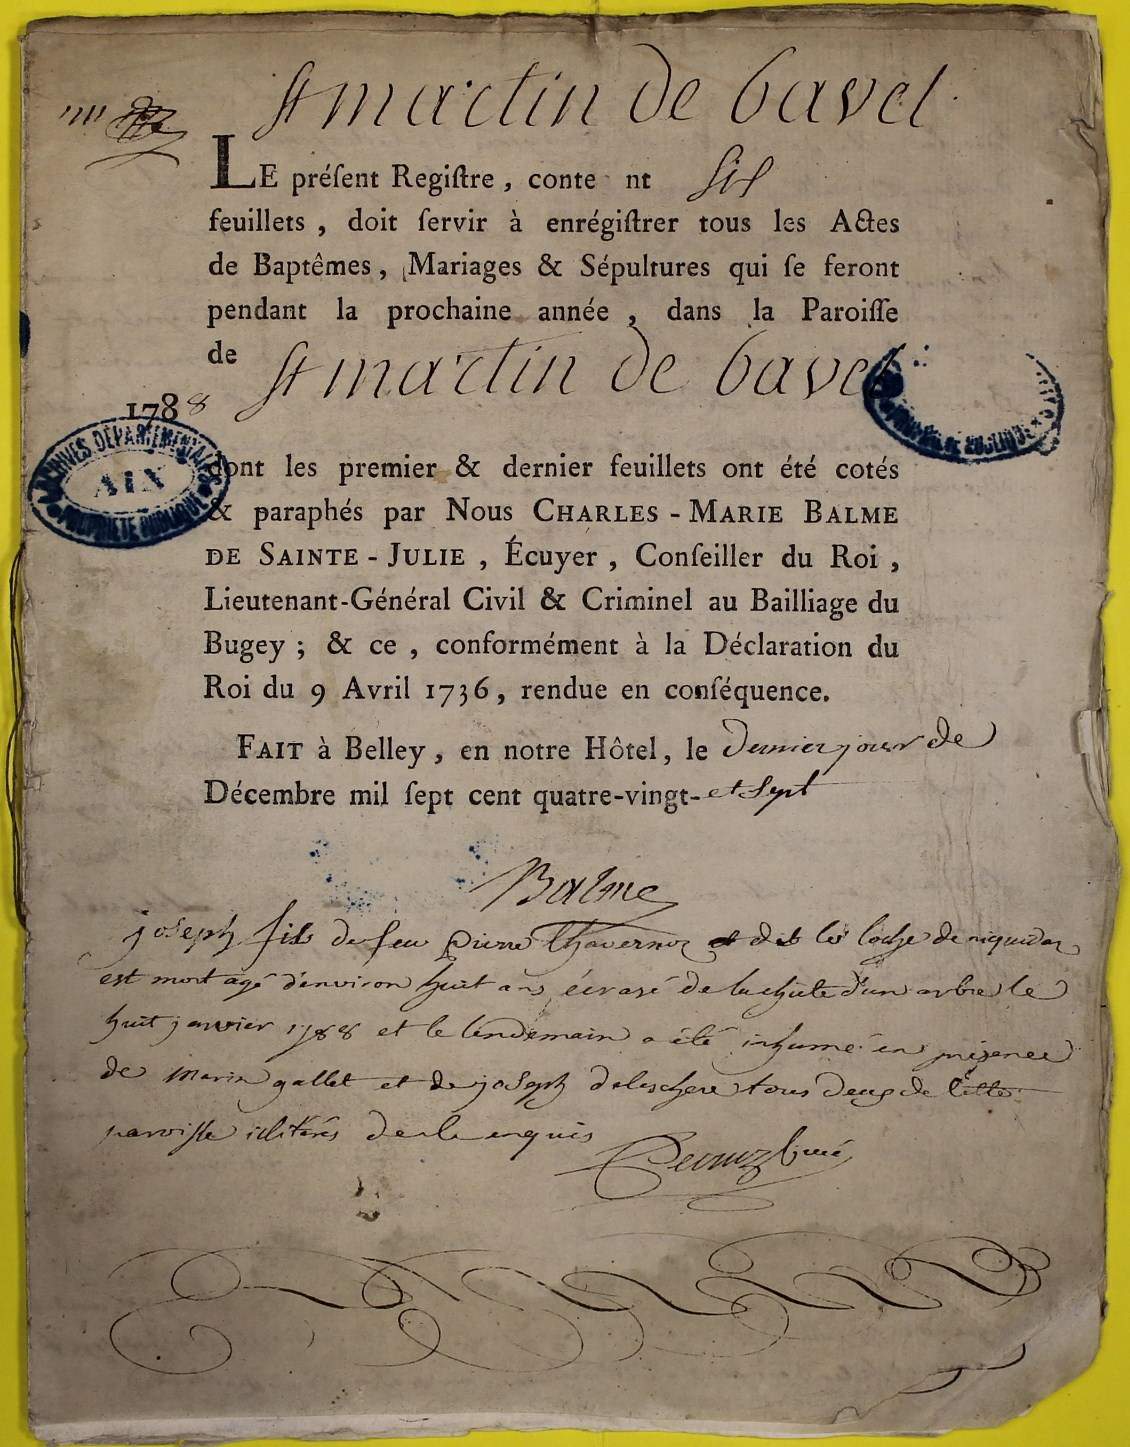 St martin de bavel
LE préſent Regiſtre, conte nt six
feuillets, doit ſervir à enrégiſtrer tous les Actes
de Baptêmes, Mariages & Sépultures qui ſe feront
pendant la prochaine année, dans la Paroiſſe
de St martin de bavel
1788
ARCHIVES DÉPARTEMENTALES
AIN
PROPRIÉTÉ PUBLIQUE
PROPRIÉTÉ PUBLIQUE
dont les premier & dernier feuillets ont été cotés
& paraphés par Nous CHARLES-MARIE BALME
DE SAINTE-JULIE, Écuyer, Conſeiller du Roi,
Lieutenant-Général Civil & Criminel au Bailliage du
Bugey; & ce, conformément à la Déclaration du
Roi du 9 Avril 1736, rendue en conſéquence.
FAIT à Belley, en notre Hôtel, le dernier jour de
Décembre mil ſept cent quatre-vingt- et sept
Balme
joseph fils de feu pierre et dit de
est mort agé d'environ huit ans écrasé de la chûte d'un arbre le
huit janvier 1788 et le lendemain a été inhumé en présence
de marin gallet et de joseph tous deux de cette
paroisse illitérés de ce enquis
curé